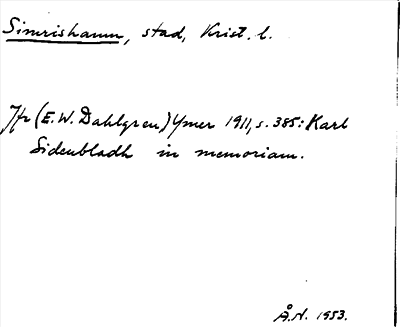 Simrishamn, stad, Krist. l.
Jfr (E.W. Dahlgren) Ymer 1911, s. 385: Karl
Sidenbladh in memoriam.
Å.N. 1953.